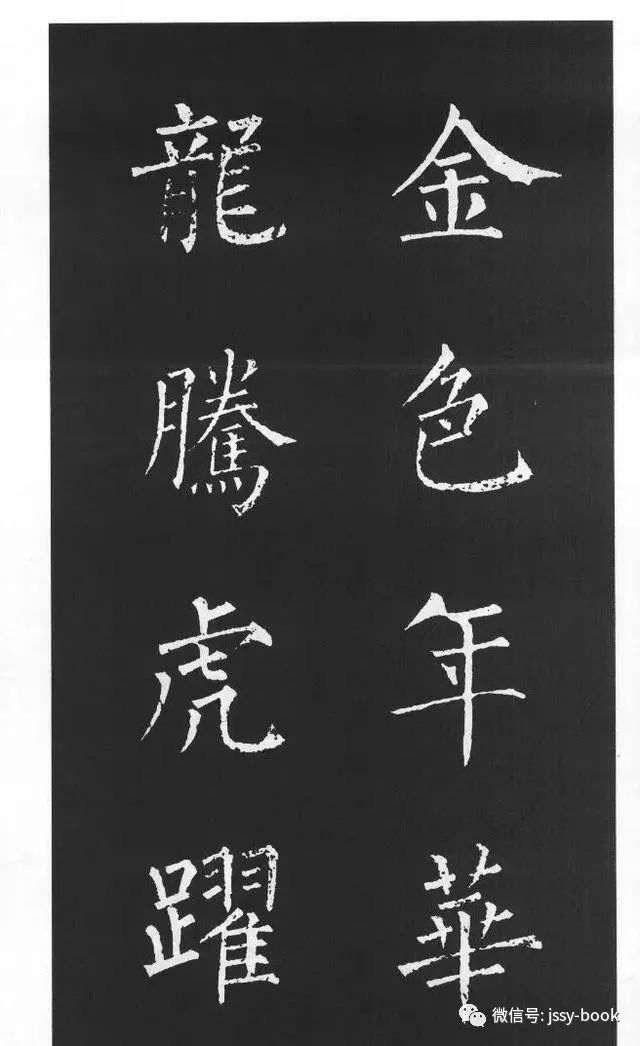 金色年華
龍騰虎躍
微信号: jssy-book